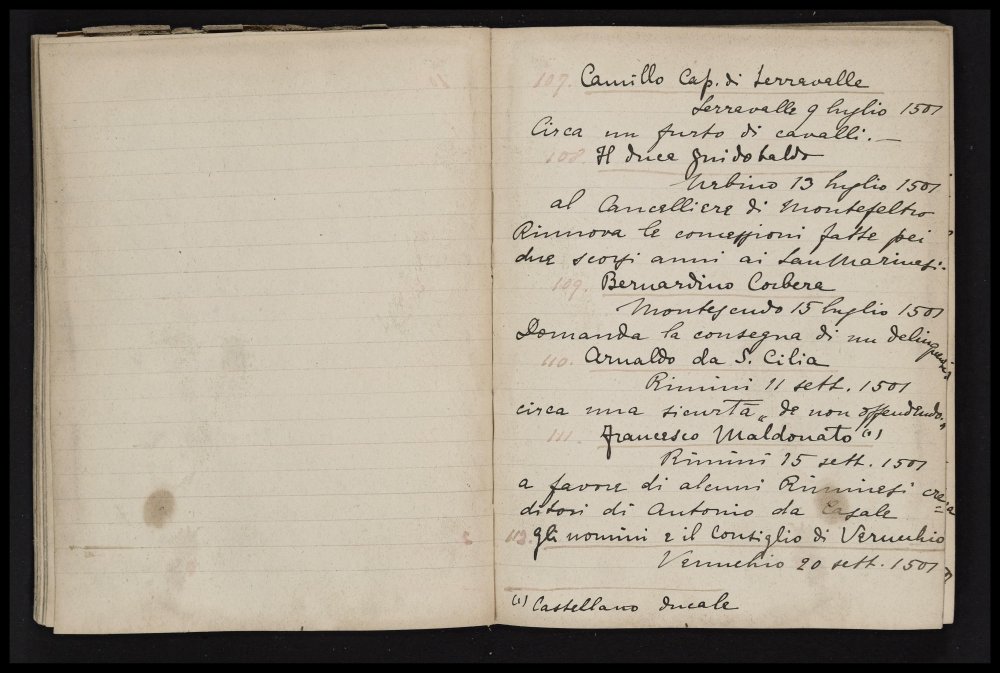 107. Camillo Cap. di Serravalle
Serravalle 9 luglio 1501
Circa un furto di cavalli. —
108. Il duca Guidobaldo
Urbino 13 luglio 1501
al Cancelliere di Montefeltro
Rinnova le concessioni fatte pei
due scorsi anni ai San Marinesi.
109. Bernardino Corbera
15 luglio 1501
Domanda la consegna di un delinquente
110. Arnaldo da S. Cilia
Rimini 11 sett. 1501
circa una sicurtà „ de non offendendo „
111. Francesco Maldonato (1)
Rimini 15 sett. 1501
a favore di alcuni Riminesi cre=
ditori di Antonio da Casale
112. Gli uomini e il Consiglio di Verucchio
Verucchio 20 sett. 1501
(1) Castellano ducale